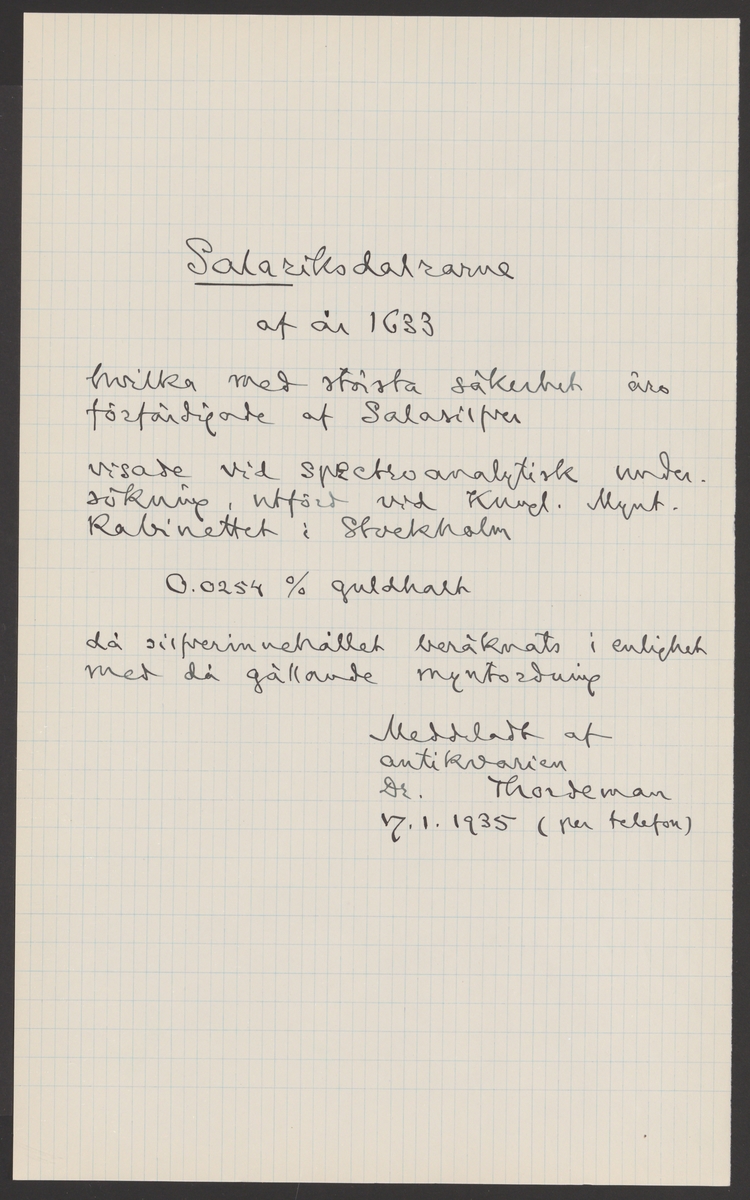 Salariksdalrarne
af år 1633
hvilka med största säkerhet äro
förfärdigade af Salasilfver
visade vid spectroanalytisk under-
sökning, utförd vid Kungl. Mynt-
Kabinettet i Stockholm
0.0254 % guldhalt
då silfverinnehållet beräknats i enlighet
med då gällande myntordning
Meddeladt af
antikvarien
Dr. Thordeman
17.1.1935 (per telefon)